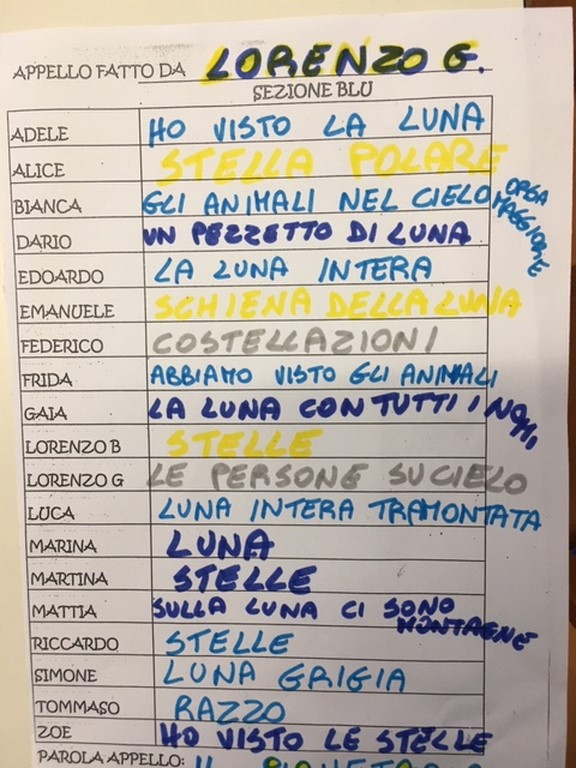 APPELLO FATTO DA LORENZO G.
SEZIONE BLU
ADELE HO VISTO LA LUNA
ALICE STELLA POLARE
BIANCA GLI ANIMALI NEL CIELO ORSA MAGGIORE
DARIO UN PEZZETTO DI LUNA
EDOARDO LA LUNA INTERA
EMANUELE SCHIENA DELLA LUNA
FEDERICO COSTELLAZIONI
FRIDA ABBIAMO VISTO GLI ANIMALI
GAIA LA LUNA CON TUTTI I NOMI
LORENZO B STELLE
LORENZO G LE PERSONE SU CIELO
LUCA LUNA INTERA TRAMONTATA
MARINA LUNA
MARTINA STELLE
MATTIA SULLA LUNA CI SONO MONTAGNE
RICCARDO STELLE
SIMONE LUNA GRIGIA
TOMMASO RAZZO
ZOE HO VISTO LE STELLE
PAROLA APPELLO: IL PLANETARIO